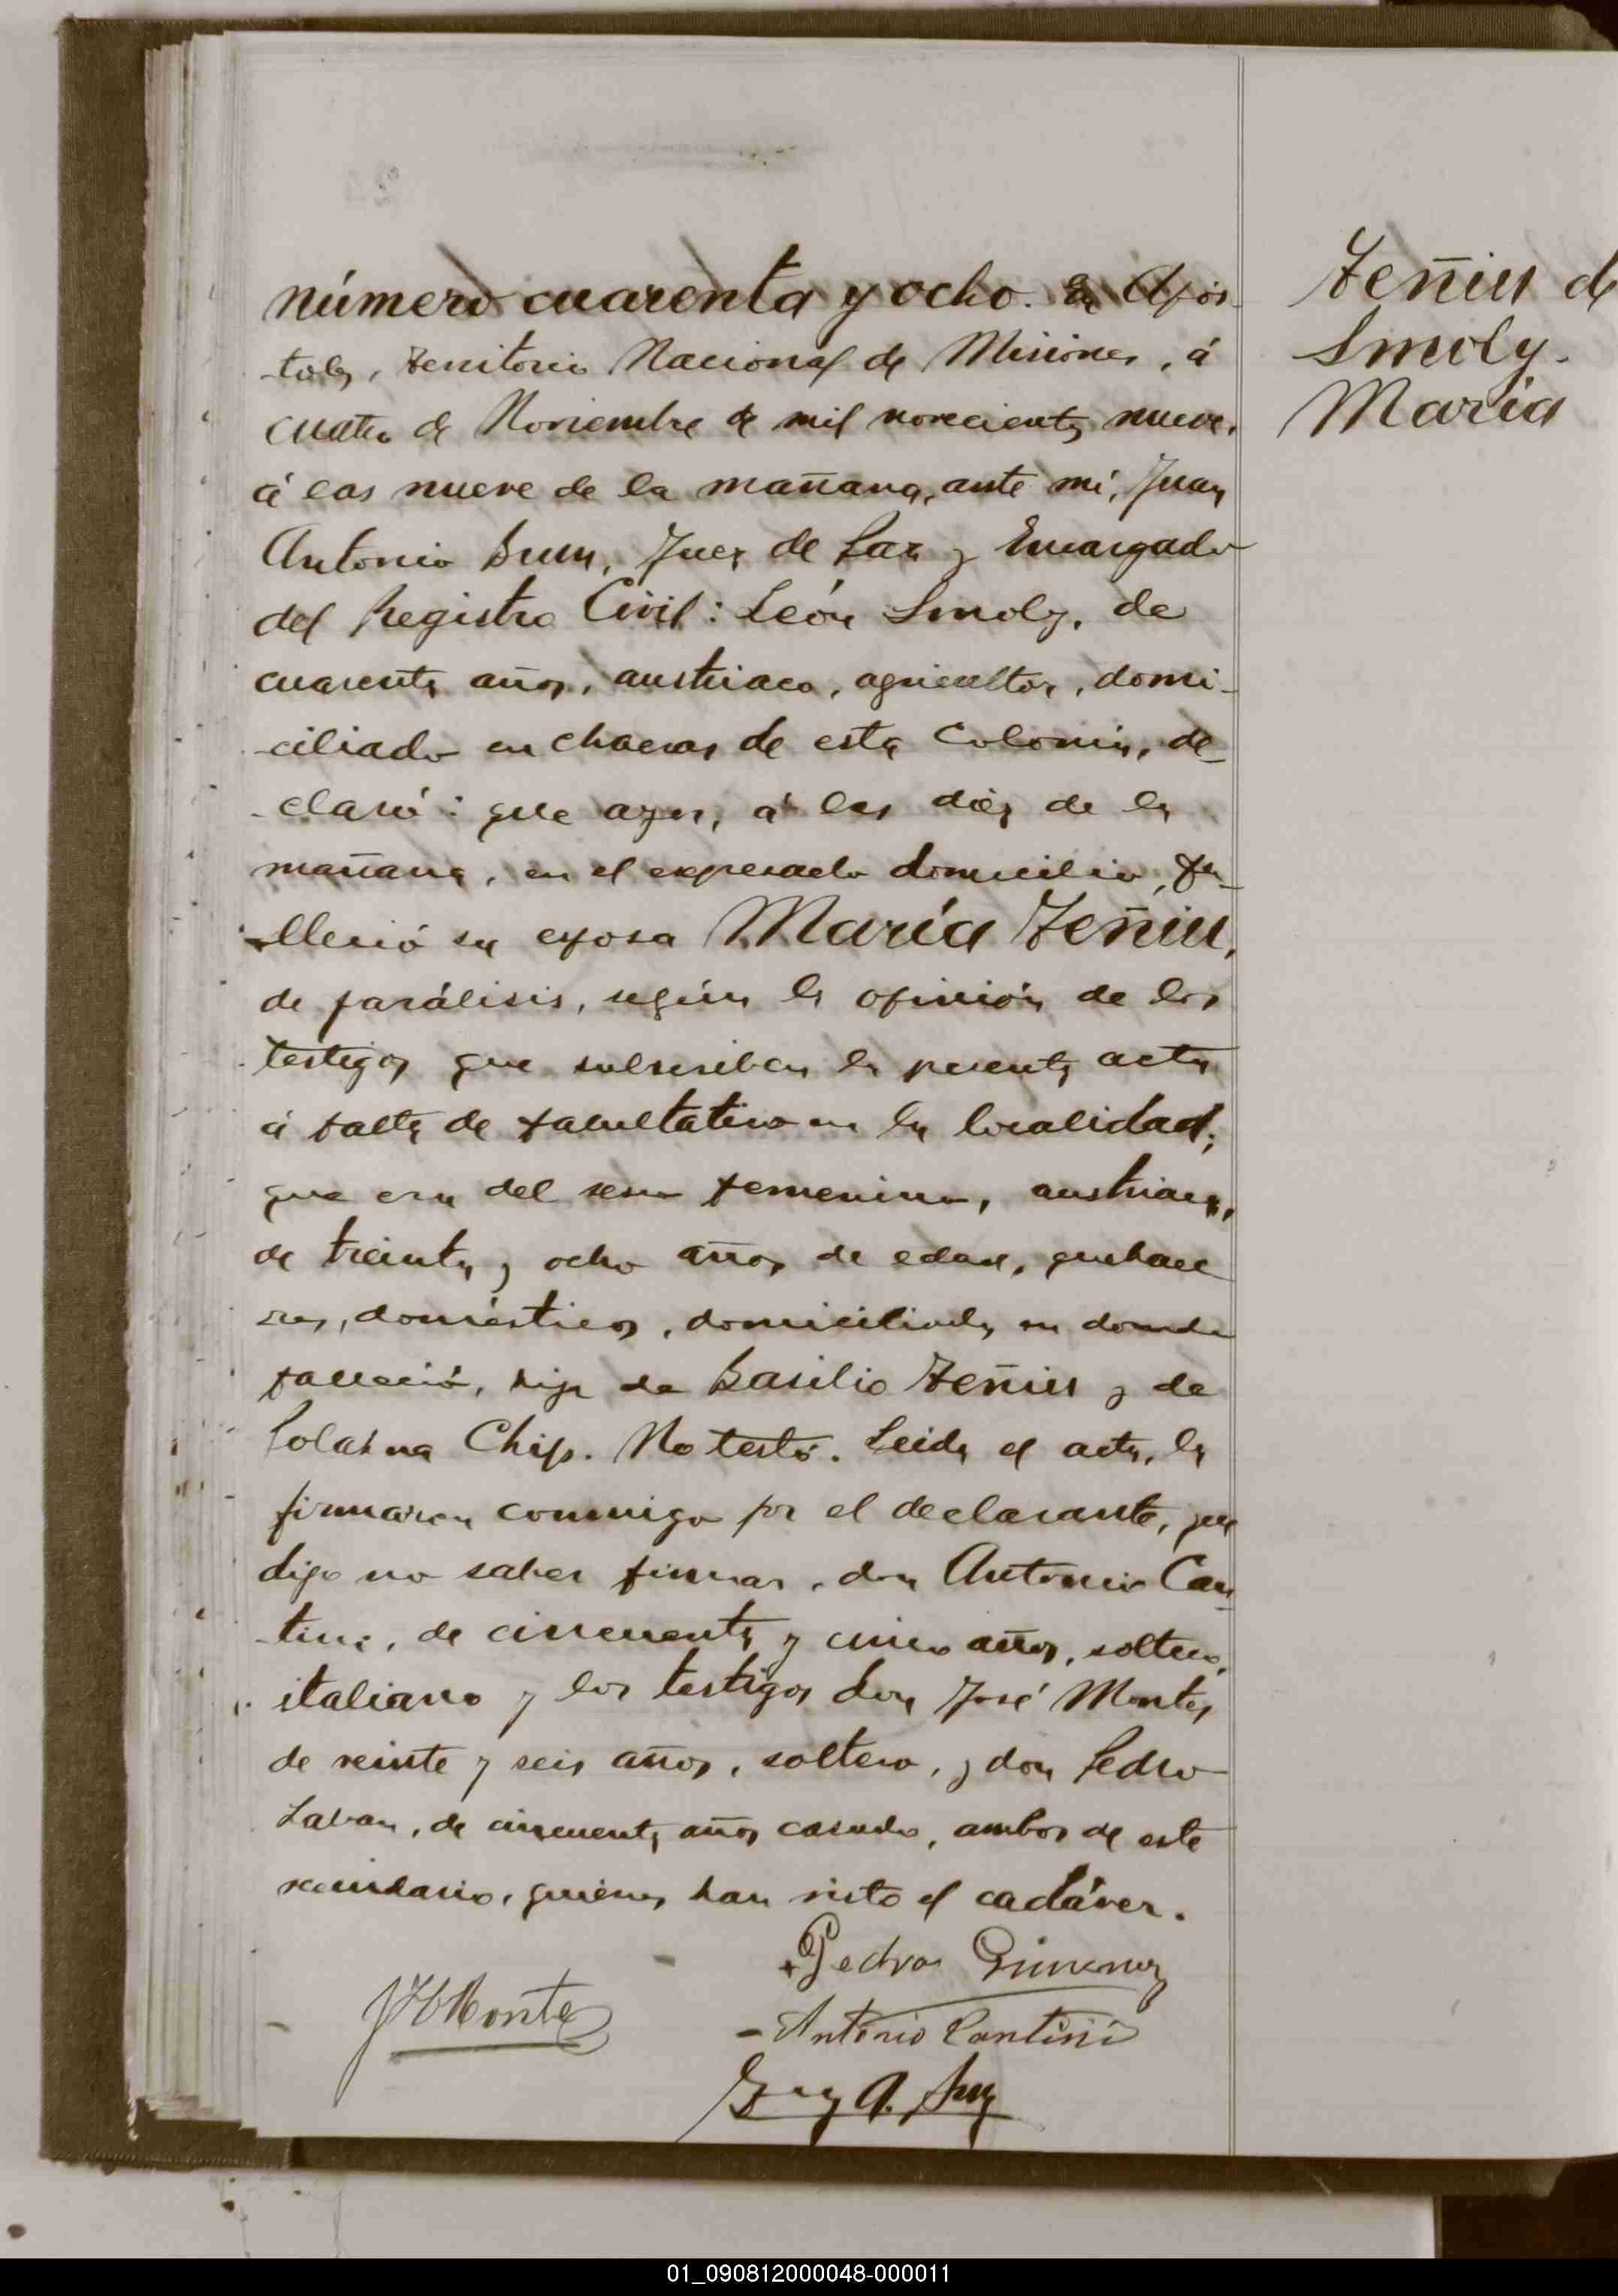 número cuarenta y ocho. En Após-
-toles, territorio Nacional de Misiones, á
cuatro de Noviembre de mil novecientos nueve,
á las nueve de la mañana, ante mí, Juan
Antonio Brun, Juez de Paz y Encargado
del Registro Civil: León Smoly, de
cuarenta años, austriaco, agricultor, domi-
-ciliado en chacras de esta Colonia, de-
-claró: que ayer, á las diez de la
mañana, en el expresado domicilio, fa-
-lleció su esposa María Feñiu,
de parálisis, según la opinión de los
testigos que subscriben la presente acta
á falta de facultativo en la localidad;
que era del sexo femenino, austriaca,
de treinta y ocho años de edad, quehace
res, domésticos, domiciliada en donde
falleció, hija de Basilio Feñiu y de
Chip. No testó. Leida el acta, la
firmaron conmigo por el declarante, que
dijo no saber firmar, don Antonio Can-
-tini, de cincuenta y cinco años, soltero,
italiano y los testigos don José Montes
de veinte y seis años, soltero, y don Pedro
de cincuenta años casado, ambos de este
vecindario, quienes han visto el cadáver.
Feñiu de
Smoly.
María
Pedro Gimenez
J H Montes
- Antonio Cantini
Juan A. Brun
01_090812000048-000011